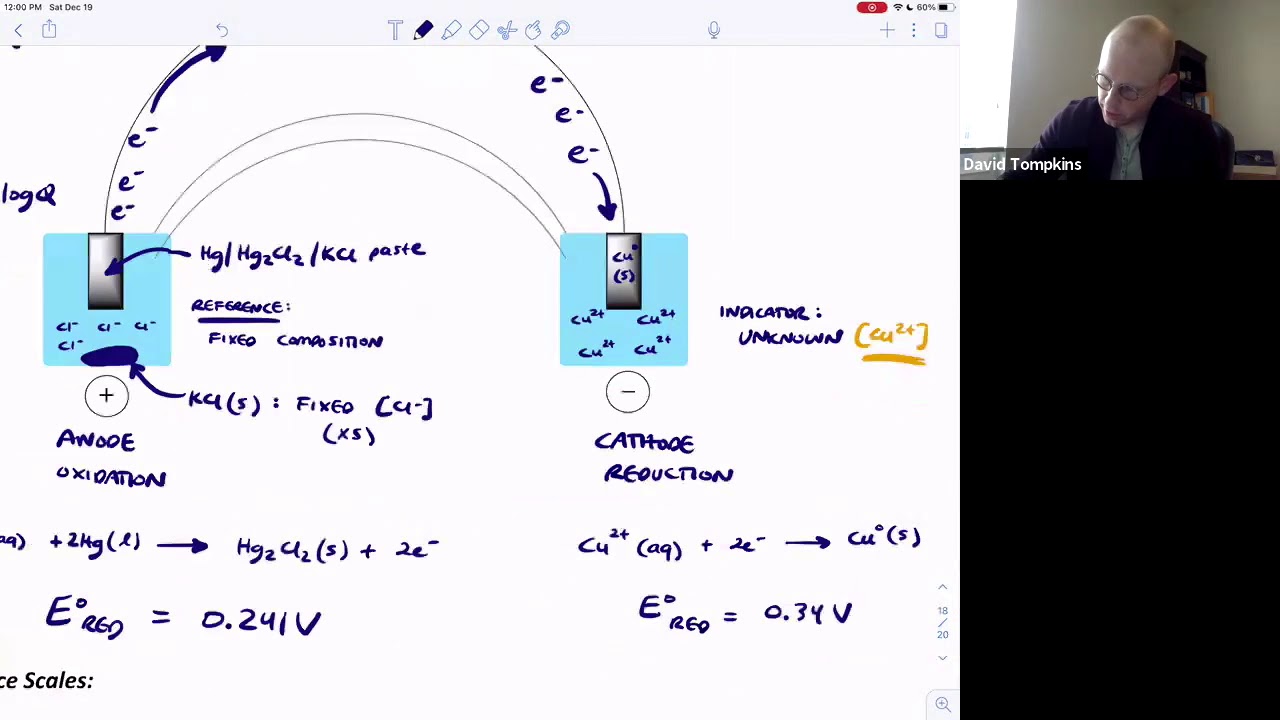 12:00 PM Sat Dec 19
60%
T
e-
e-
e-
e-
e-
e-
logQ
Hg/Hg₂Cl₂/KCl paste
Cu°
(s)
REFERENCE:
FIXED COMPOSITION
Cl- Cl- Cl-
Cl-
Cu²⁺ Cu²⁺
Cu²⁺ Cu²⁺
INDICATOR:
UNKNOWN [Cu²⁺]
+
KCl(s): FIXED [Cl-]
(XS)
−
ANODE
OXIDATION
CATHODE
REDUCTION
aq) +2Hg(l) → Hg₂Cl₂(s) + 2e-
Cu²⁺(aq) + 2e- → Cu°(s)
E°RED = 0.241V
E°RED = 0.34V
18
/
20
ce Scales:
David Tompkins